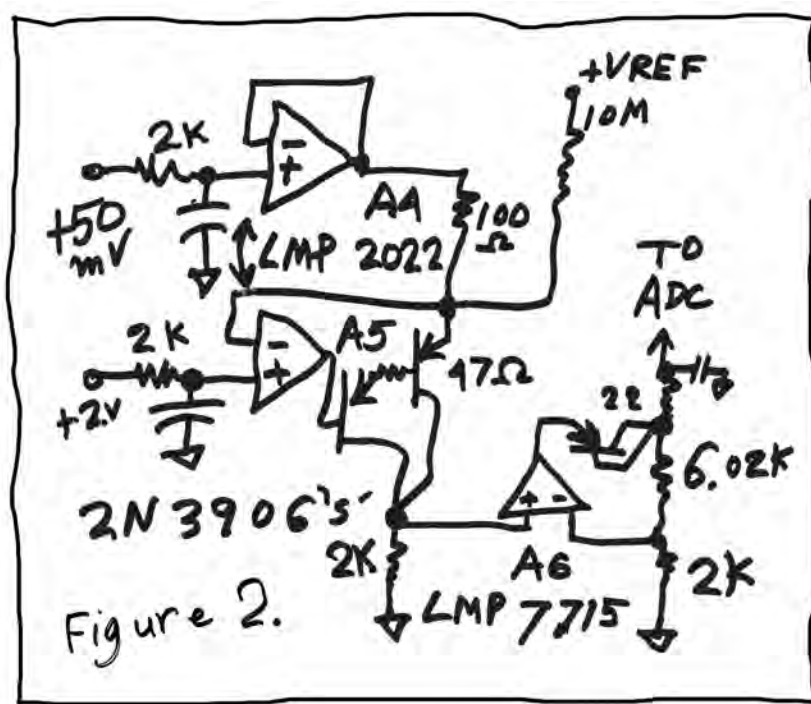 +VREF
10M
2K
−
+
A4
100
Ω
+50
mV
LMP 2022
TO
ADC
2K
−
+
A5
47Ω
+2.V
22
6.02K
2N3906's
+ −
2K
A6
2K
LMP 7715
Figure 2.